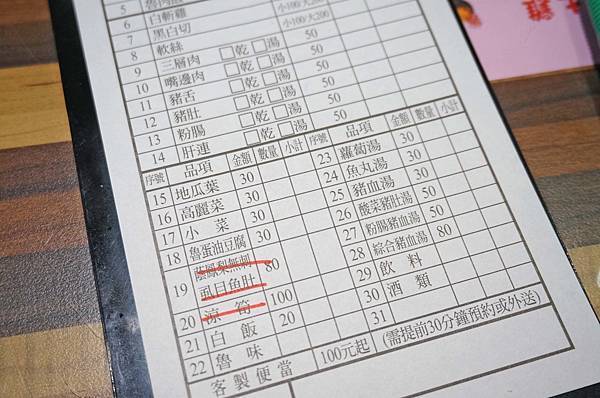 5 魯肉飯
6 白斬雞 小100/大200
7 黑白切 小100/大200
8 軟絲 50
9 三層肉 □乾 □湯 50
10 嘴邊肉 □乾 □湯 50
11 豬舌 □乾 □湯 50
12 豬肚 □乾 □湯 50
13 粉腸 □乾 □湯 50
14 肝連 □乾 □湯 50
序號 品項 金額 數量 小計 序號 品項 金額 數量 小計
15 地瓜葉 30 23 蘿蔔湯 30
16 高麗菜 30 24 魚丸湯 30
17 小菜 30 25 豬血湯 30
18 魯蛋油豆腐 30 26 酸菜豬肚湯 50
19 蔭鳳梨無刺虱目魚肚 80 27 粉腸豬血湯 50
20 涼筍 100 28 綜合豬血湯 80
21 白飯 20 29 飲料
22 魯味 30 酒類
31
客製便當 100元起 (需提前30分鐘預約或外送)